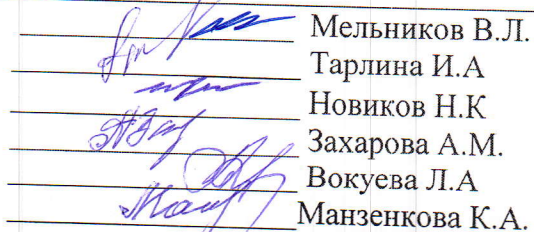 Мельников В.Л.
Тарлина И.А
Новиков Н.К
Захарова А.М.
Вокуева Л.А
Манзенкова К.А.